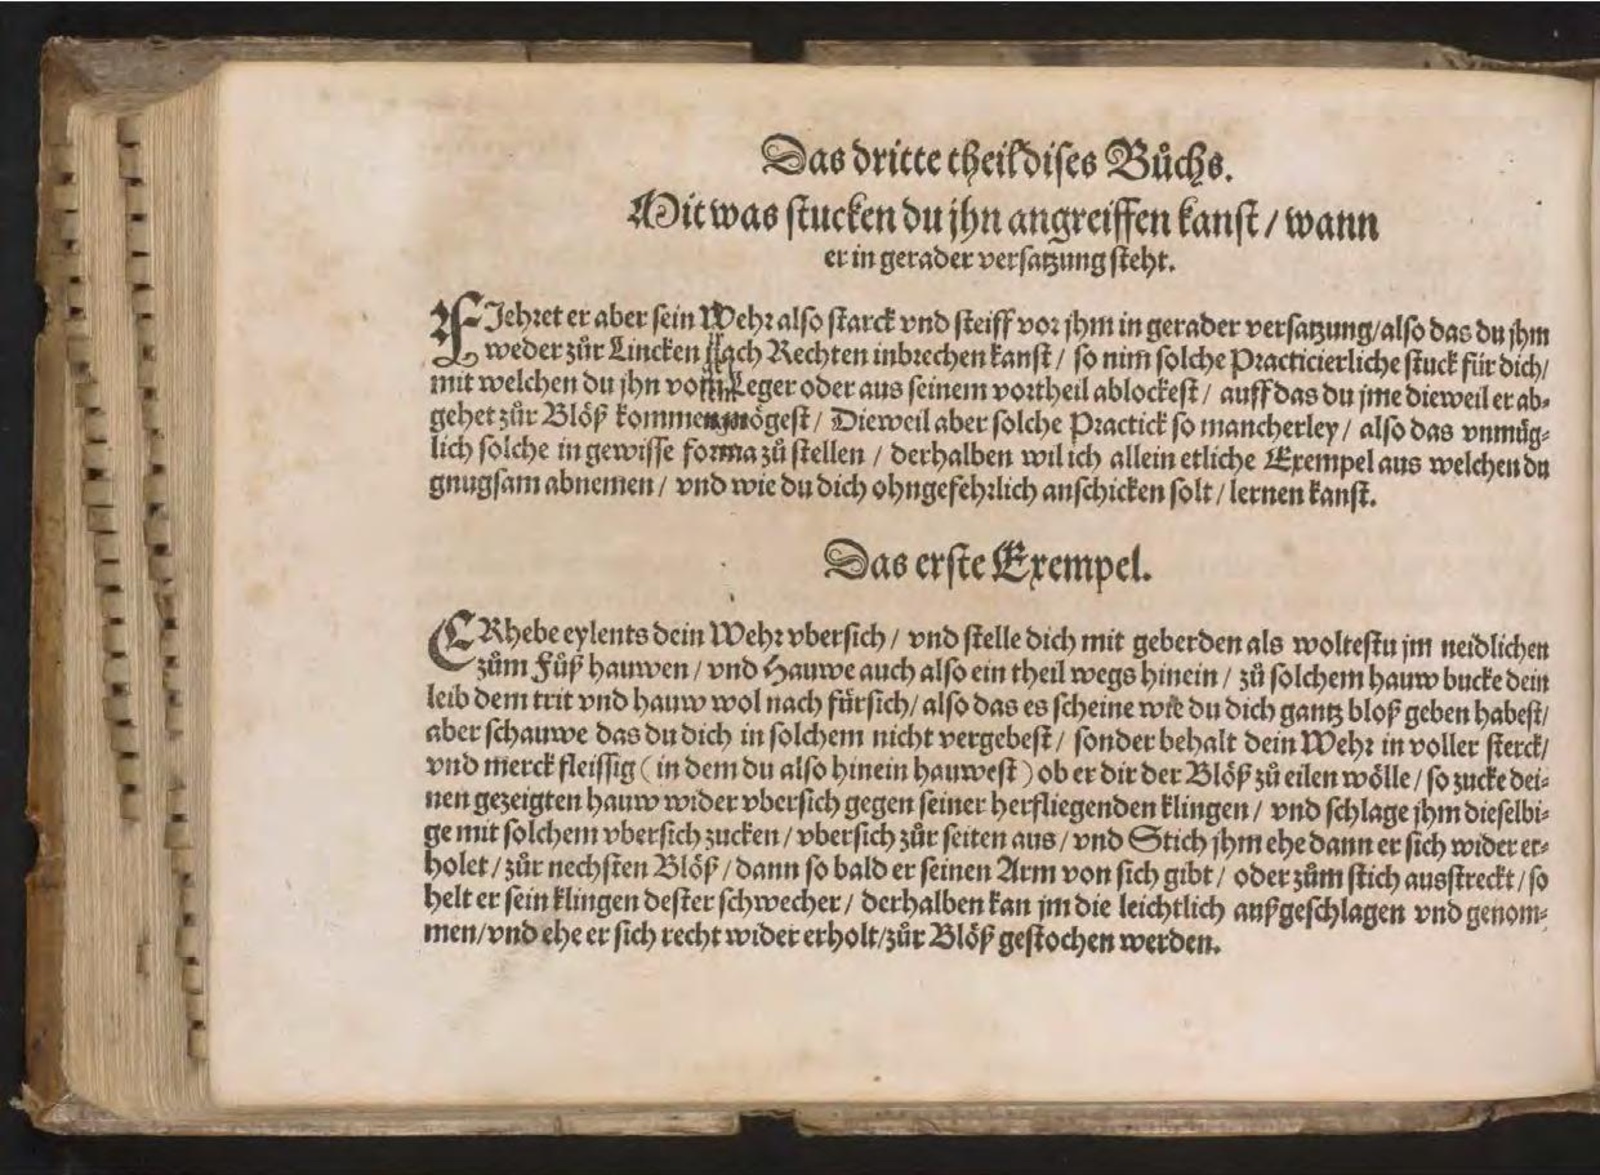 Das dritte theil dises Bůchs.
Mit was stucken du jhn angreiffen kanst / wann
er in gerader versatzung steht.
FJehret er aber sein Wehr also starck vnd steiff vor jhm in gerader versatzung/also das du jhm
weder zůr Lincken nach Rechten inbrechen kanst / so nim solche Practicierliche stuck für dich/
mit welchen du jhn vom Leger oder aus seinem vortheil ablockest / auff das du jme dieweil er ab-
gehet zůr Blöß kommen mögest / Dieweil aber solche Practick so mancherley / also das vnmüg-
lich solche in gewisse forma zů stellen / derhalben wil ich allein etliche Exempel aus welchen du
gnugsam abnemen / vnd wie du dich ohngefehrlich anschicken solt / lernen kanst.
Das erste Exempel.
ERhebe eylents dein Wehr vbersich / vnd stelle dich mit geberden als woltestu jm neidlichen
zům Fůß hauwen / vnd Hauwe auch also ein theil wegs hinein / zů solchem hauw bucke dein
leib dem trit vnd hauw wol nach fürsich/ also das es scheine wie du dich gantz bloß geben habest/
aber schauwe das du dich in solchem nicht vergebest / sonder behalt dein Wehr in voller sterck/
vnd merck fleissig ( in dem du also hinein hauwest ) ob er dir der Blöß zů eilen wölle / so zucke dei-
nen gezeigten hauw wider vbersich gegen seiner herfliegenden klingen / vnd schlage jhm dieselbi-
ge mit solchem vbersich zucken / vbersich zůr seiten aus / vnd Stich jhm ehe dann er sich wider er-
holet / zůr nechsten Blöß / dann so bald er seinen Arm von sich gibt / oder zům stich ausstreckt / so
helt er sein klingen dester schwecher / derhalben kan jm die leichtlich außgeschlagen vnd genom-
men/vnd ehe er sich recht wider erholt/zůr Blöß gestochen werden.